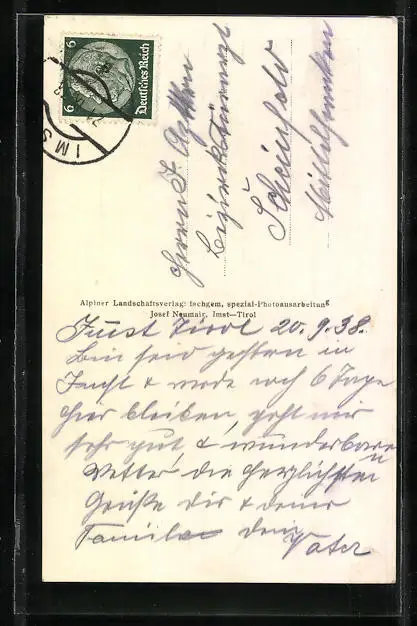 6 6
Deutsches Reich
IMS
Herrn J.
Bezirkstierarzt
Scheinfeld
Mittelfranken
Alpiner Landschaftsverlag: fachgem. spezial-Photoausarbeitung
Josef Neumair, Imst—Tirol
Imst Tirol 20.9.38.
Bin seid gestern in
Imst & werde noch 6 Tage
hier bleiben, geht mir
sehr gut, & wunderbares
Wetter, die herzlichsten
Grüße dir & deiner
Familie dein
Vater